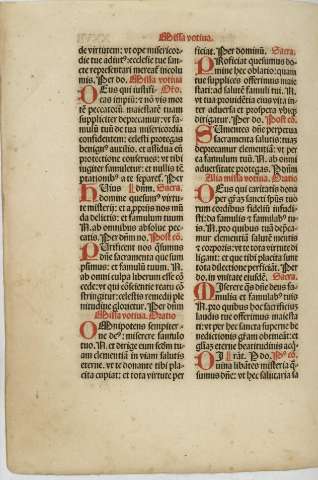 Missa votiua.
de virtutem: vt ope misericor
die tue adiut⁹: ecclesie tue san
cte representari mereat incolu
mis. Per do. Missa votiua
DEus qui iustifi- Oro.
cas impiũ: ⁊ nõ vis mor
tẽ peccatoꝝ: maiestatẽ tuam
suppliciter deprecamur: vt fa-
mulũ tuũ de tua misericordia
confidentem: celestis protegas
benign⁹ auxilio. et assidua tua
protectione conserues: vt tibi
iugiter famuletur: et nullis tẽ
ptationib⁹ a te separet. Per
HUius dñm. Sacra.
domine quesum⁹ virtu-
te misterij: et a ꝓprijs nos mũ
da delictis: et famulum tuum
N. ab omnibus absolue pec-
catis. Per dñm no. Post cõ.
PUrificent nos q̃sumus
dñe sacramenta que sum
psimus: et famulũ tuum. N.
ab omni culpa liberum esse cõ
cede: vt qui cõscientie reatu cõ
stringitur: celestis remedij ple
nitudine glorietur. Per dñm
Missa votiua. Oratio
OMnipotens sempiter-
ne de⁹: miserere famulo
tuo. N. et dirige eum scdm tu-
am clementiã in viam salutis
eterne. vt te donante tibi pla-
cita cupiat: et tota virtute per
ficiat. Per dominũ. Sacra.
PRoficiat quesumus do-
mine hec oblatio: quam
tue supplices offerimus maie
stati: ad salutẽ famuli tui. N.
vt tua prouidẽtia eius vita in-
ter aduersa et prospera vbiqꝫ
dirigatur. Per do. Post cõ.
SUmentes dñe perpetua
sacramenta salutis: tuaꝫ
deprecamur clementiã: vt per
ea famulum tuũ. N. ab omni
aduersitate protegas. P. dñm
Alia missa votiua. Oratio
DEus qui caritatis dona
per grãꝫ sancti spũs tuo
rum cordibus fidelium infudi
sti: da famulis ⁊ famulab⁹ tu-
is. N. pro quibus tuã depreca
mur clementiã salutẽ mentis
⁊ corporis: vt te tota virtute di
ligant: et que tibi placita sunt
tota dilectione perficiãt. Per
do. in vnitate eiusdẽ. Sacra.
MIserere q̃s dñe deus fa-
mulis et famulab⁹ tuis
N. pro quibus hoc sacrificium
laudis tue offerimus maiesta
ti: vt per hec sancta superne be
nedictionis grãm obtineãt: et
gliãꝫ eterne beatitudinis acq̃-
DIuina libãtes misteria q̃
sumus dñe: vt hec salutaria sa